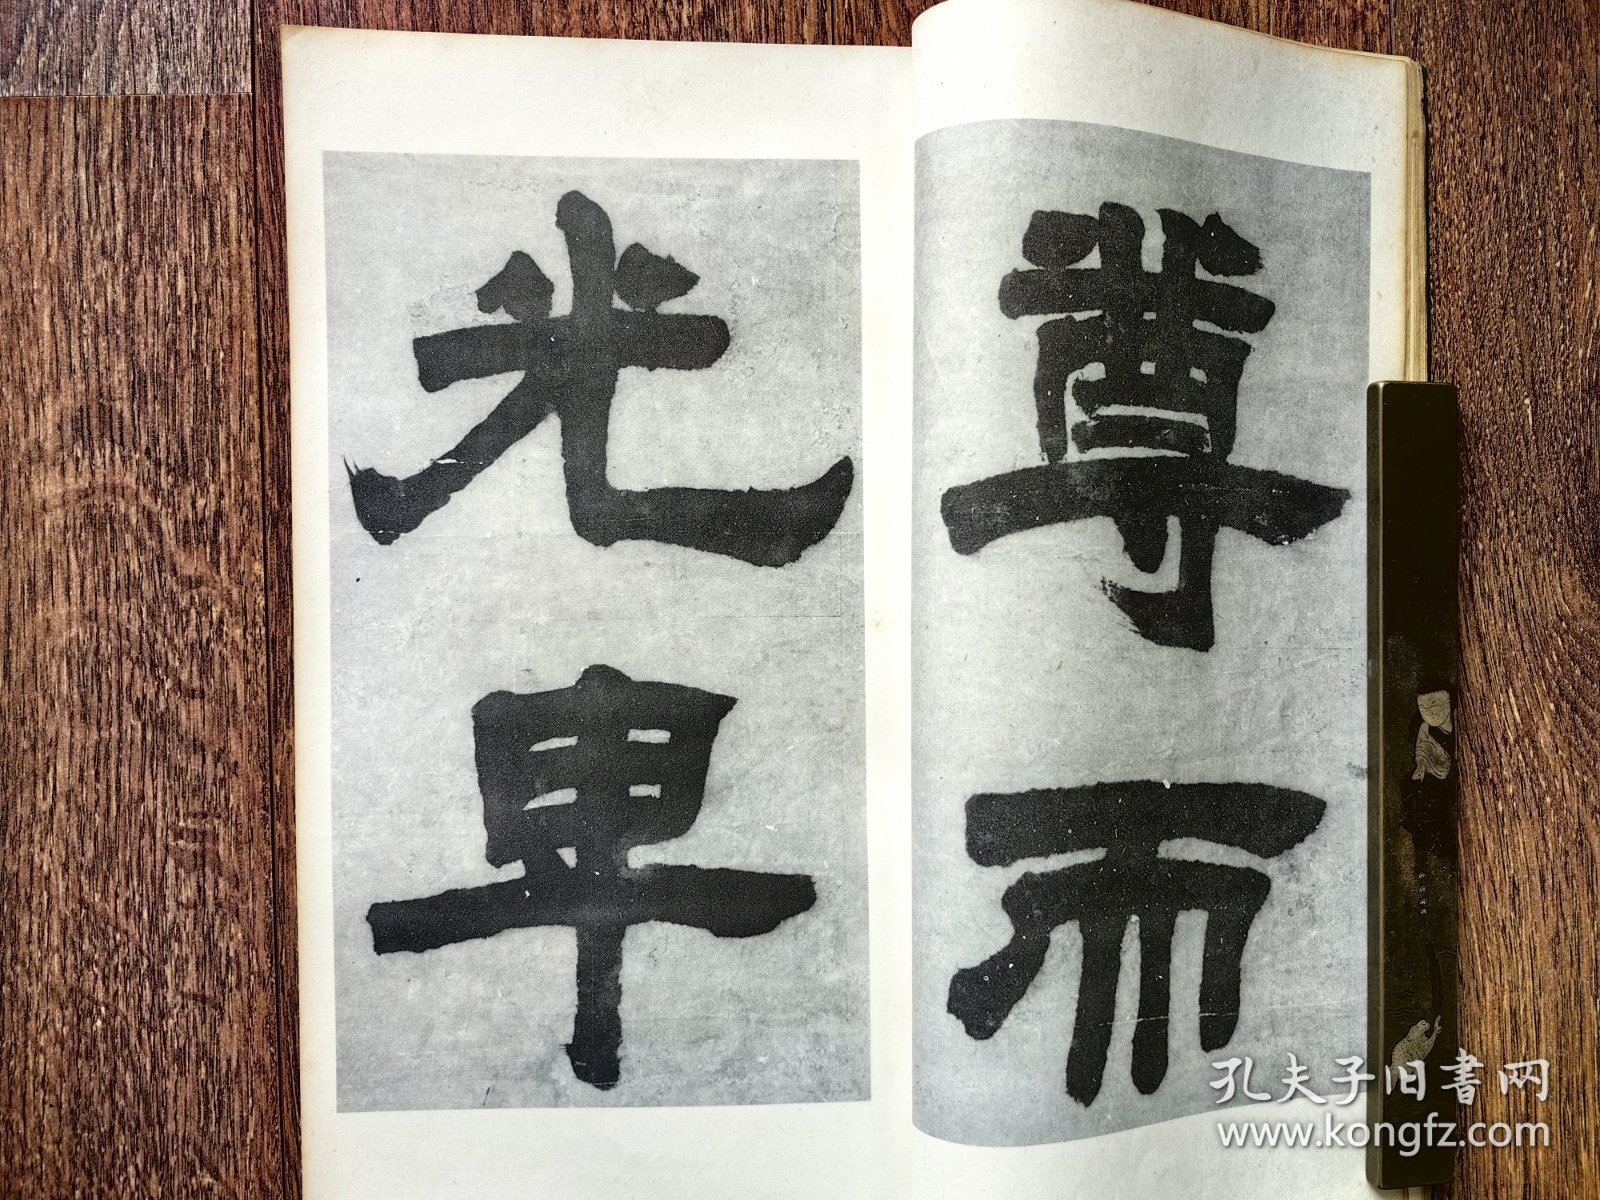 尊而
光卑
孔夫子旧書网
www.kongfz.com